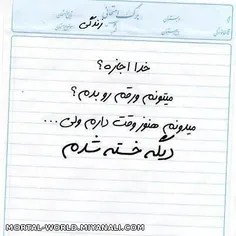 زندگی
خدا اجازه؟
میتونم ورقم رو بدم؟
میدونم هنوز وقت دارم ولی...
دیگه خسته شدم
MORTAL-WORLD.MIYANALI.COM